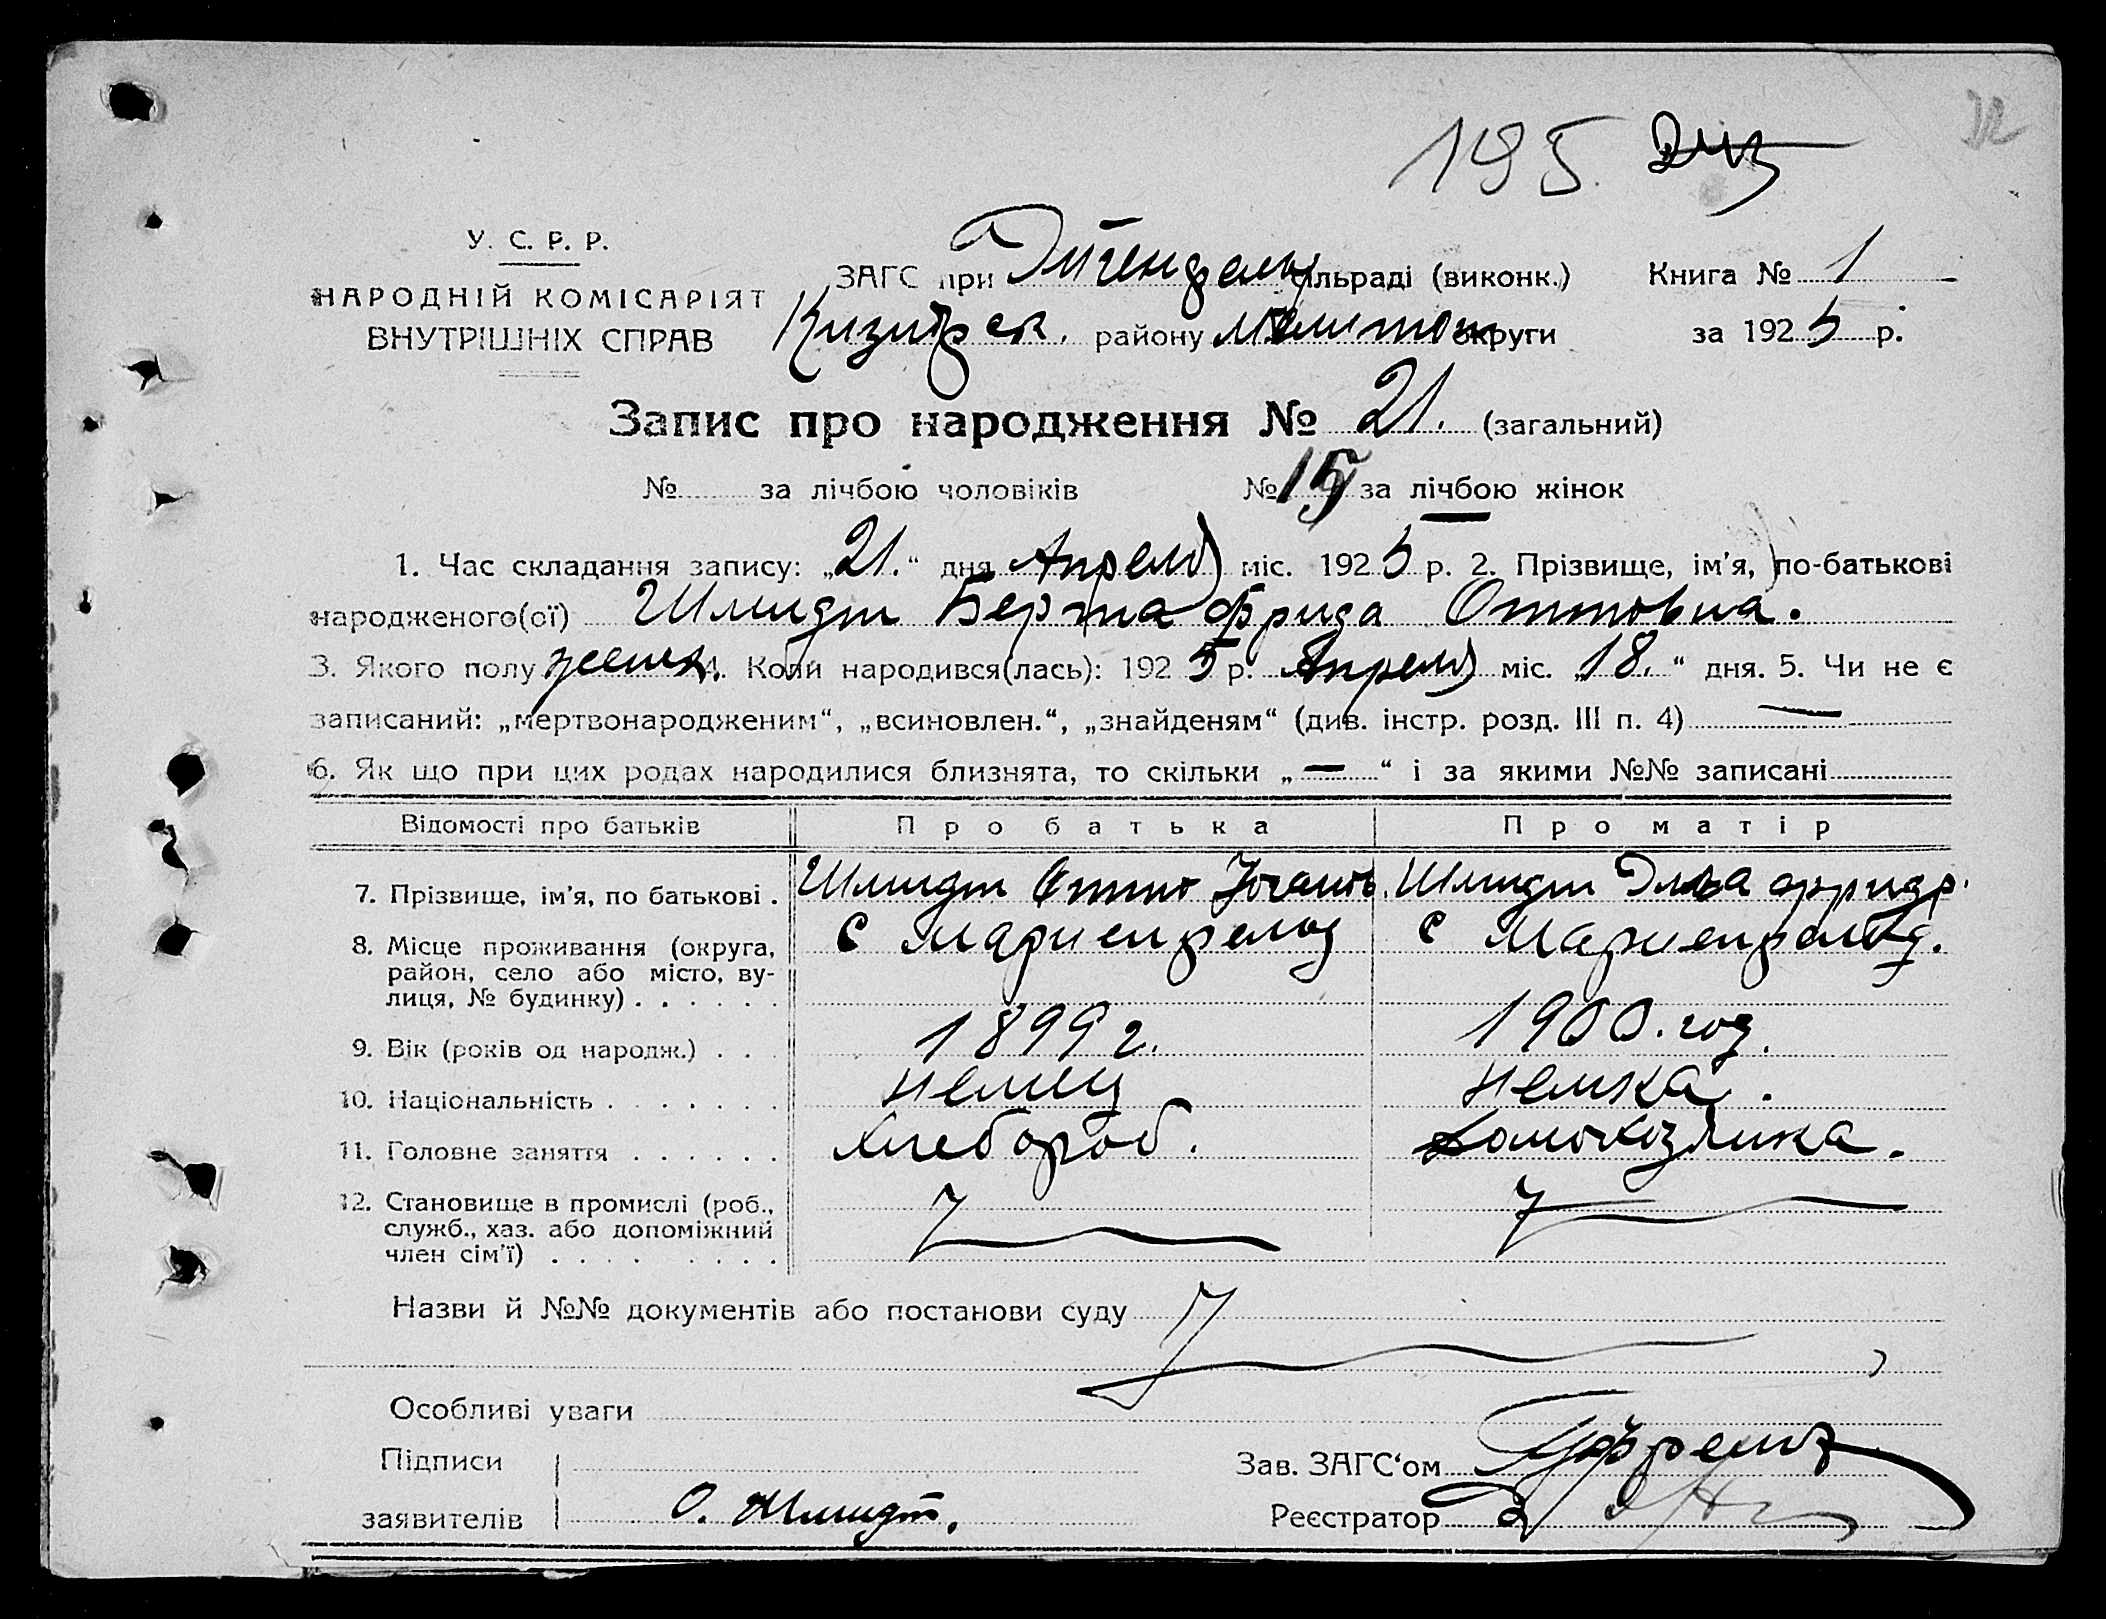 195.
32
У. С. Р. Р.
НАРОДНІЙ КОМІСАРІЯТ
ВНУТРІШНІХ СПРАВ
ЗАГС при Эйгенфельд сільраді (виконк.) Книга № 1
району Мелитоп округи за 1925 р.
Запис про народження № 21. (загальний)
№ за лічбою чоловіків № 15 за лічбою жінок
1. Час складання запису: „21.“ дня Апреля міс. 1925 р. 2. Прізвище, ім'я, по-батькові
народженого(ої) Шмидт Берта Фрида Оттовна.
3. Якого полу женск. 4. Коли народився(лась): 1925 р. Апреля міс. „18.“ дня. 5. Чи не є
записаний: „мертвонародженим“, „всиновлен.“, „знайденям“ (див. інстр. розд. III п. 4) —
6. Як що при цих родах народилися близнята, то скільки „—“ і за якими №№ записані
Відомості про батьків Про батька Про матір
7. Прізвище, ім'я, по батькові . Шмидт Отто Иоганов. Шмидт Эльза Фридр.
8. Місце проживання (округа, с Мариенфельд с Мариенфельд.
район, село або місто, ву-
лиця, № будинку) . . . . . .
9. Вік (років од народж.) . . . 1899 г. 1900. год.
10. Національність . . . . . . . немец немка.
11. Головне заняття . . . . . . хлебороб. домохозяйка.
12. Становище в промислі (роб.,
служб., хаз. або допоміжний
член сім'ї) . . . . . . . .
Назви й №№ документів або постанови суду
Особливі уваги
Підписи Зав. ЗАГС‘ом
заявителів О. Шмидт. Реєстратор